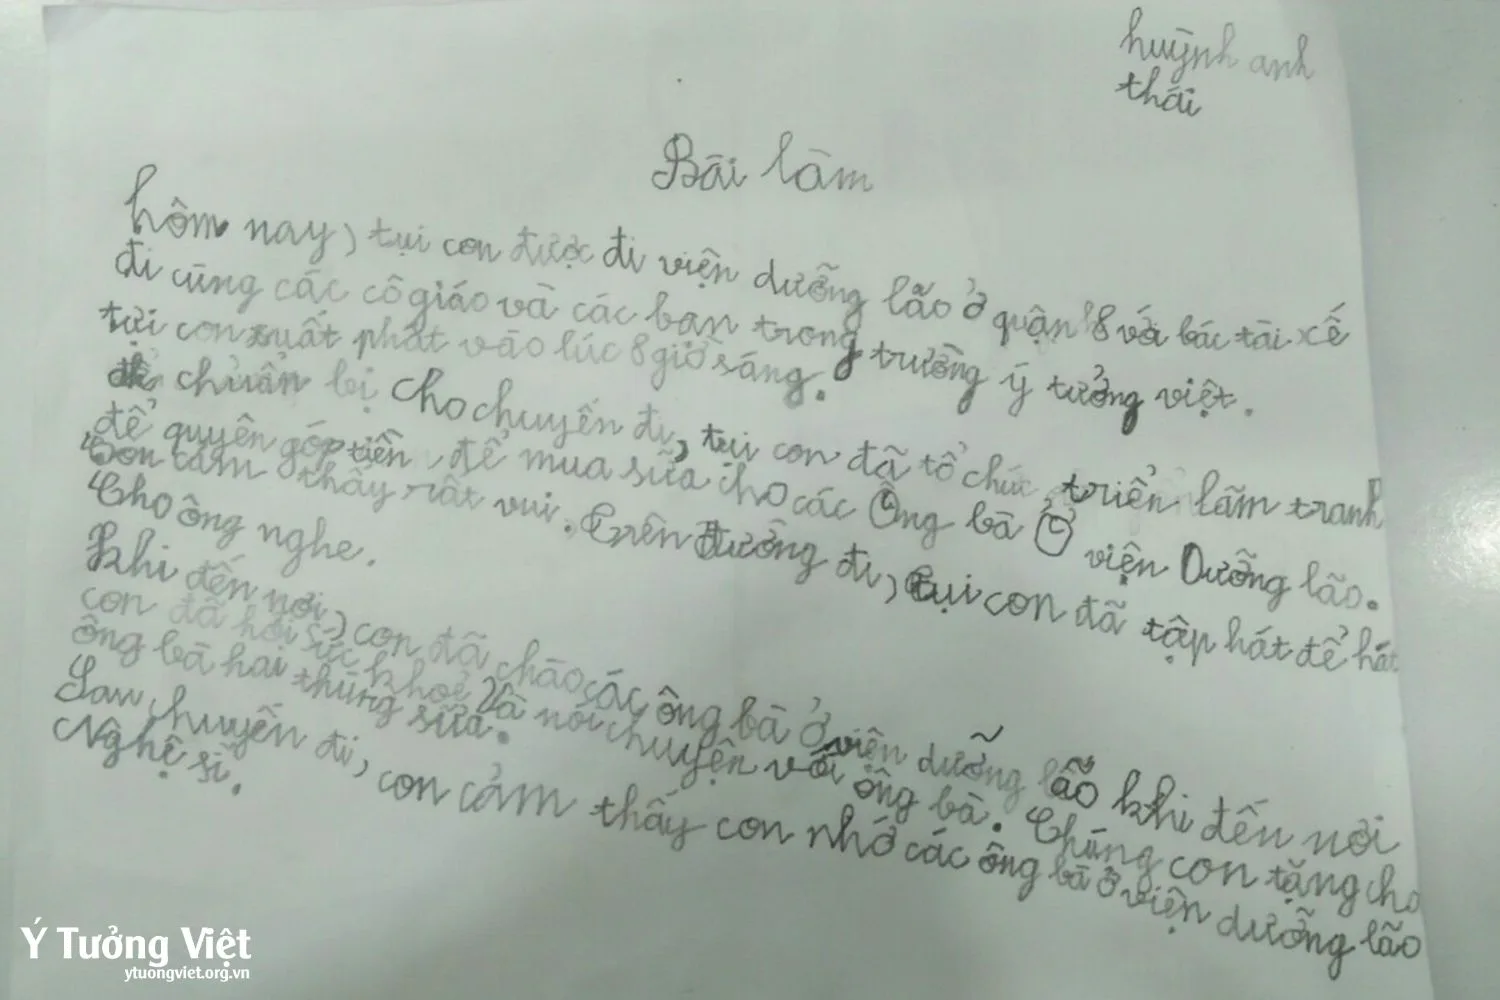 huỳnh anh
thái
Bài làm
hôm nay, tụi con được đi viện dưỡng lão ở quận 8 với bác tài xế
đi cùng các cô giáo và các bạn trong trường ý tưởng việt.
tụi con xuất phát vào lúc 8 giờ sáng.
để chuẩn bị cho chuyến đi, tụi con đã tổ chức triển lãm tranh
để quyên góp tiền để mua sữa cho các Ông bà Ở viện Dưỡng lão.
Con cảm thấy rất vui. Trên đường đi, tụi con đã tập hát để hát
Cho ông nghe.
Khi đến nơi, con đã chào các ông bà ở viện dưỡng lão khi đến nơi
con đã hỏi sức khoẻ Và nói chuyện với ông bà. Chúng con tặng cho
ông bà hai thùng sữa.
Sau chuyến đi, con cảm thấy con nhớ các ông bà ở viện dưỡng lão
Nghệ sĩ.
Ý Tưởng Việt
ytuongviet.org.vn